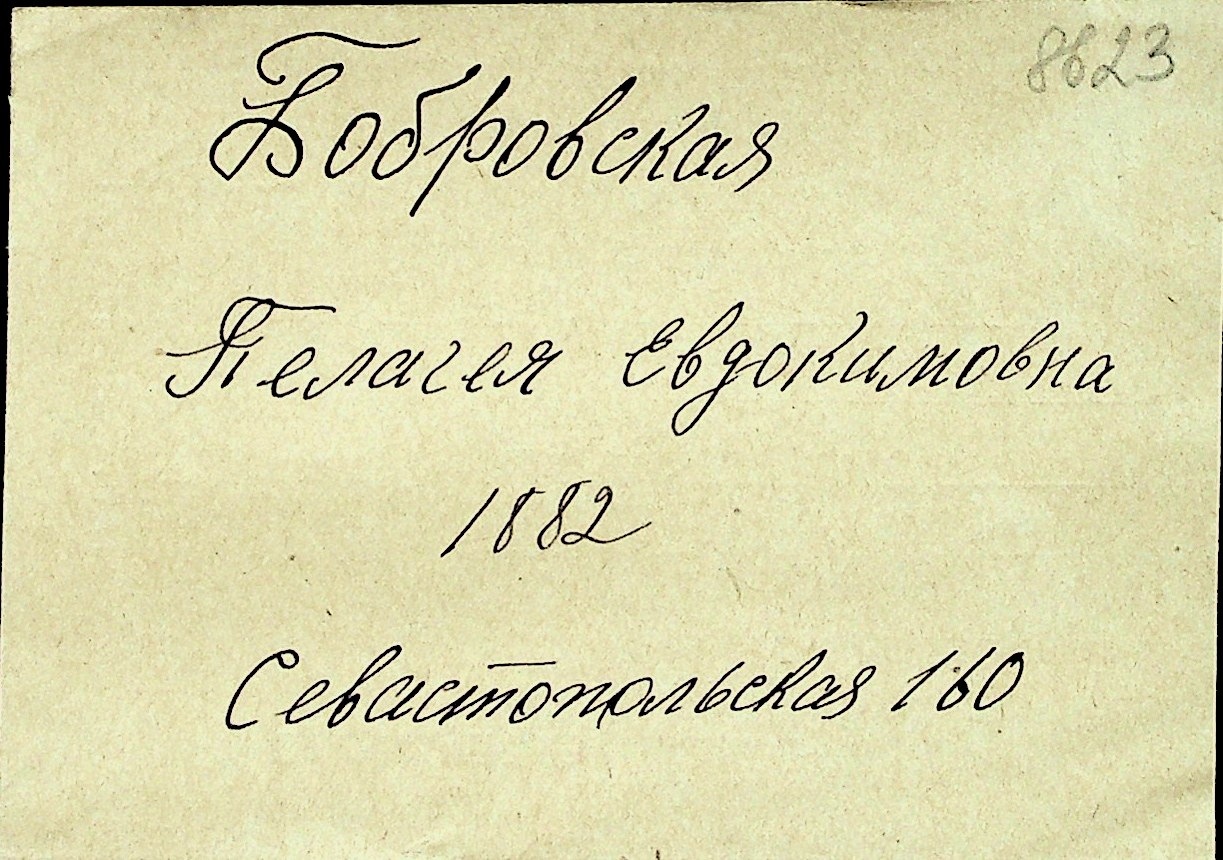 8623
Бобровская
Пелагея Евдокимовна
1882
Севастопольская 160